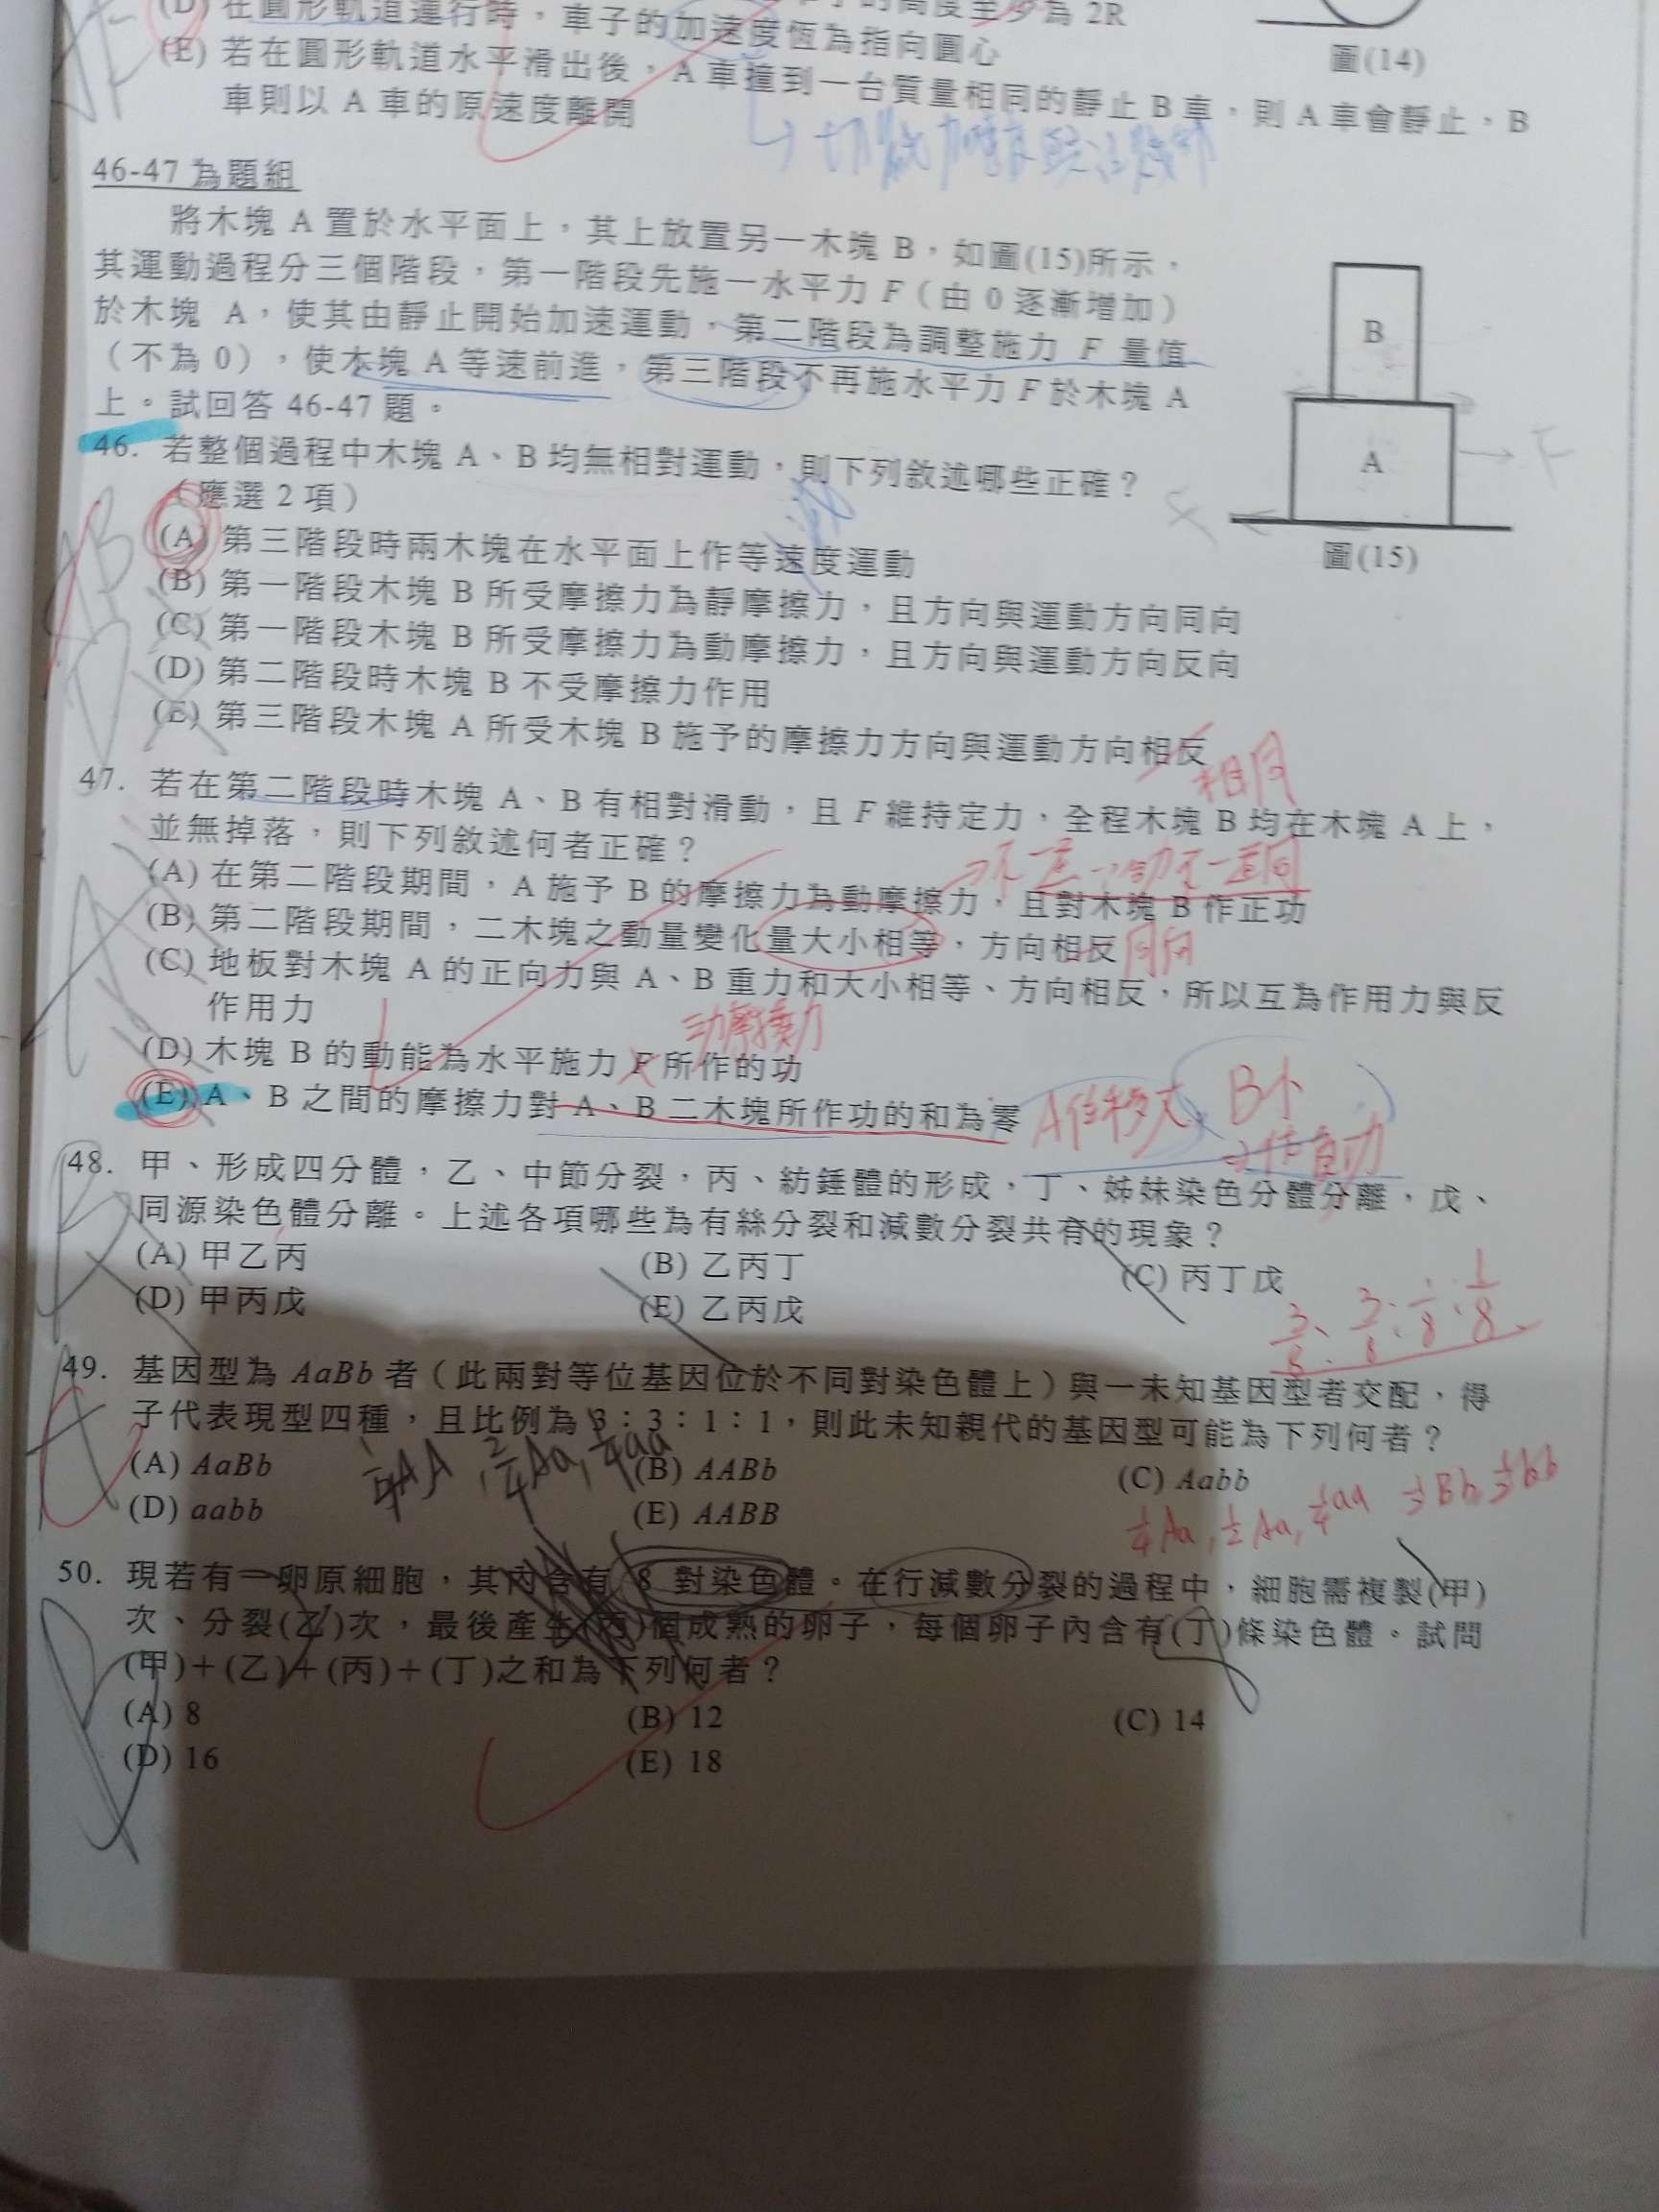 (D) 在圓形軌道運行時，車子的加速度恆為指向圓心
高度至少為 2R
(E) 若在圓形軌道水平滑出後，A 車撞到一台質量相同的靜止 B 車，則 A 車會靜止，B
車則以 A 車的原速度離開
圖(14)
46-47 為題組
將木塊 A 置於水平面上，其上放置另一木塊 B，如圖(15)所示，
其運動過程分三個階段，第一階段先施一水平力 F（由 0 逐漸增加）
於木塊 A，使其由靜止開始加速運動，第二階段為調整施力 F 量值
（不為 0），使木塊 A 等速前進，第三階段不再施水平力 F 於木塊 A
上。試回答 46-47 題。
B
A
F
圖(15)
46. 若整個過程中木塊 A、B 均無相對運動，則下列敘述哪些正確？
（應選 2 項）
(A) 第三階段時兩木塊在水平面上作等速度運動
(B) 第一階段木塊 B 所受摩擦力為靜摩擦力，且方向與運動方向同向
(C) 第一階段木塊 B 所受摩擦力為動摩擦力，且方向與運動方向反向
(D) 第二階段時木塊 B 不受摩擦力作用
(E) 第三階段木塊 A 所受木塊 B 施予的摩擦力方向與運動方向相反
相同
47. 若在第二階段時木塊 A、B 有相對滑動，且 F 維持定力，全程木塊 B 均在木塊 A 上，
並無掉落，則下列敘述何者正確？
(A) 在第二階段期間，A 施予 B 的摩擦力為動摩擦力，且對木塊 B 作正功
(B) 第二階段期間，二木塊之動量變化量大小相等，方向相反
同向
(C) 地板對木塊 A 的正向力與 A、B 重力和大小相等、方向相反，所以互為作用力與反
作用力
動摩擦力
(D) 木塊 B 的動能為水平施力 F 所作的功
(E) A、B 之間的摩擦力對 A、B 二木塊所作功的和為零
A位移大, B小
→作負功
48. 甲、形成四分體，乙、中節分裂，丙、紡錘體的形成，丁、姊妹染色分體分離，戊、
同源染色體分離。上述各項哪些為有絲分裂和減數分裂共有的現象？
(A) 甲乙丙 (B) 乙丙丁 (C) 丙丁戊
(D) 甲丙戊 (E) 乙丙戊
49. 基因型為 AaBb 者（此兩對等位基因位於不同對染色體上）與一未知基因型者交配，得
子代表現型四種，且比例為 3：3：1：1，則此未知親代的基因型可能為下列何者？
1/4 AA, 2/4 Aa, 1/4 aa
(A) AaBb (B) AABb (C) Aabb
(D) aabb (E) AABB
1/4 Aa, 1/2 Aa, 1/4 aa 1/2 Bb 1/2 bb
50. 現若有一卵原細胞，其內含有 8 對染色體。在行減數分裂的過程中，細胞需複製(甲)
次、分裂(乙)次，最後產生(丙)個成熟的卵子，每個卵子內含有(丁)條染色體。試問
(甲)＋(乙)＋(丙)＋(丁)之和為下列何者？
(A) 8 (B) 12 (C) 14
(D) 16 (E) 18